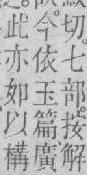 切。七部。按解
今依玉篇廣
此亦如以構